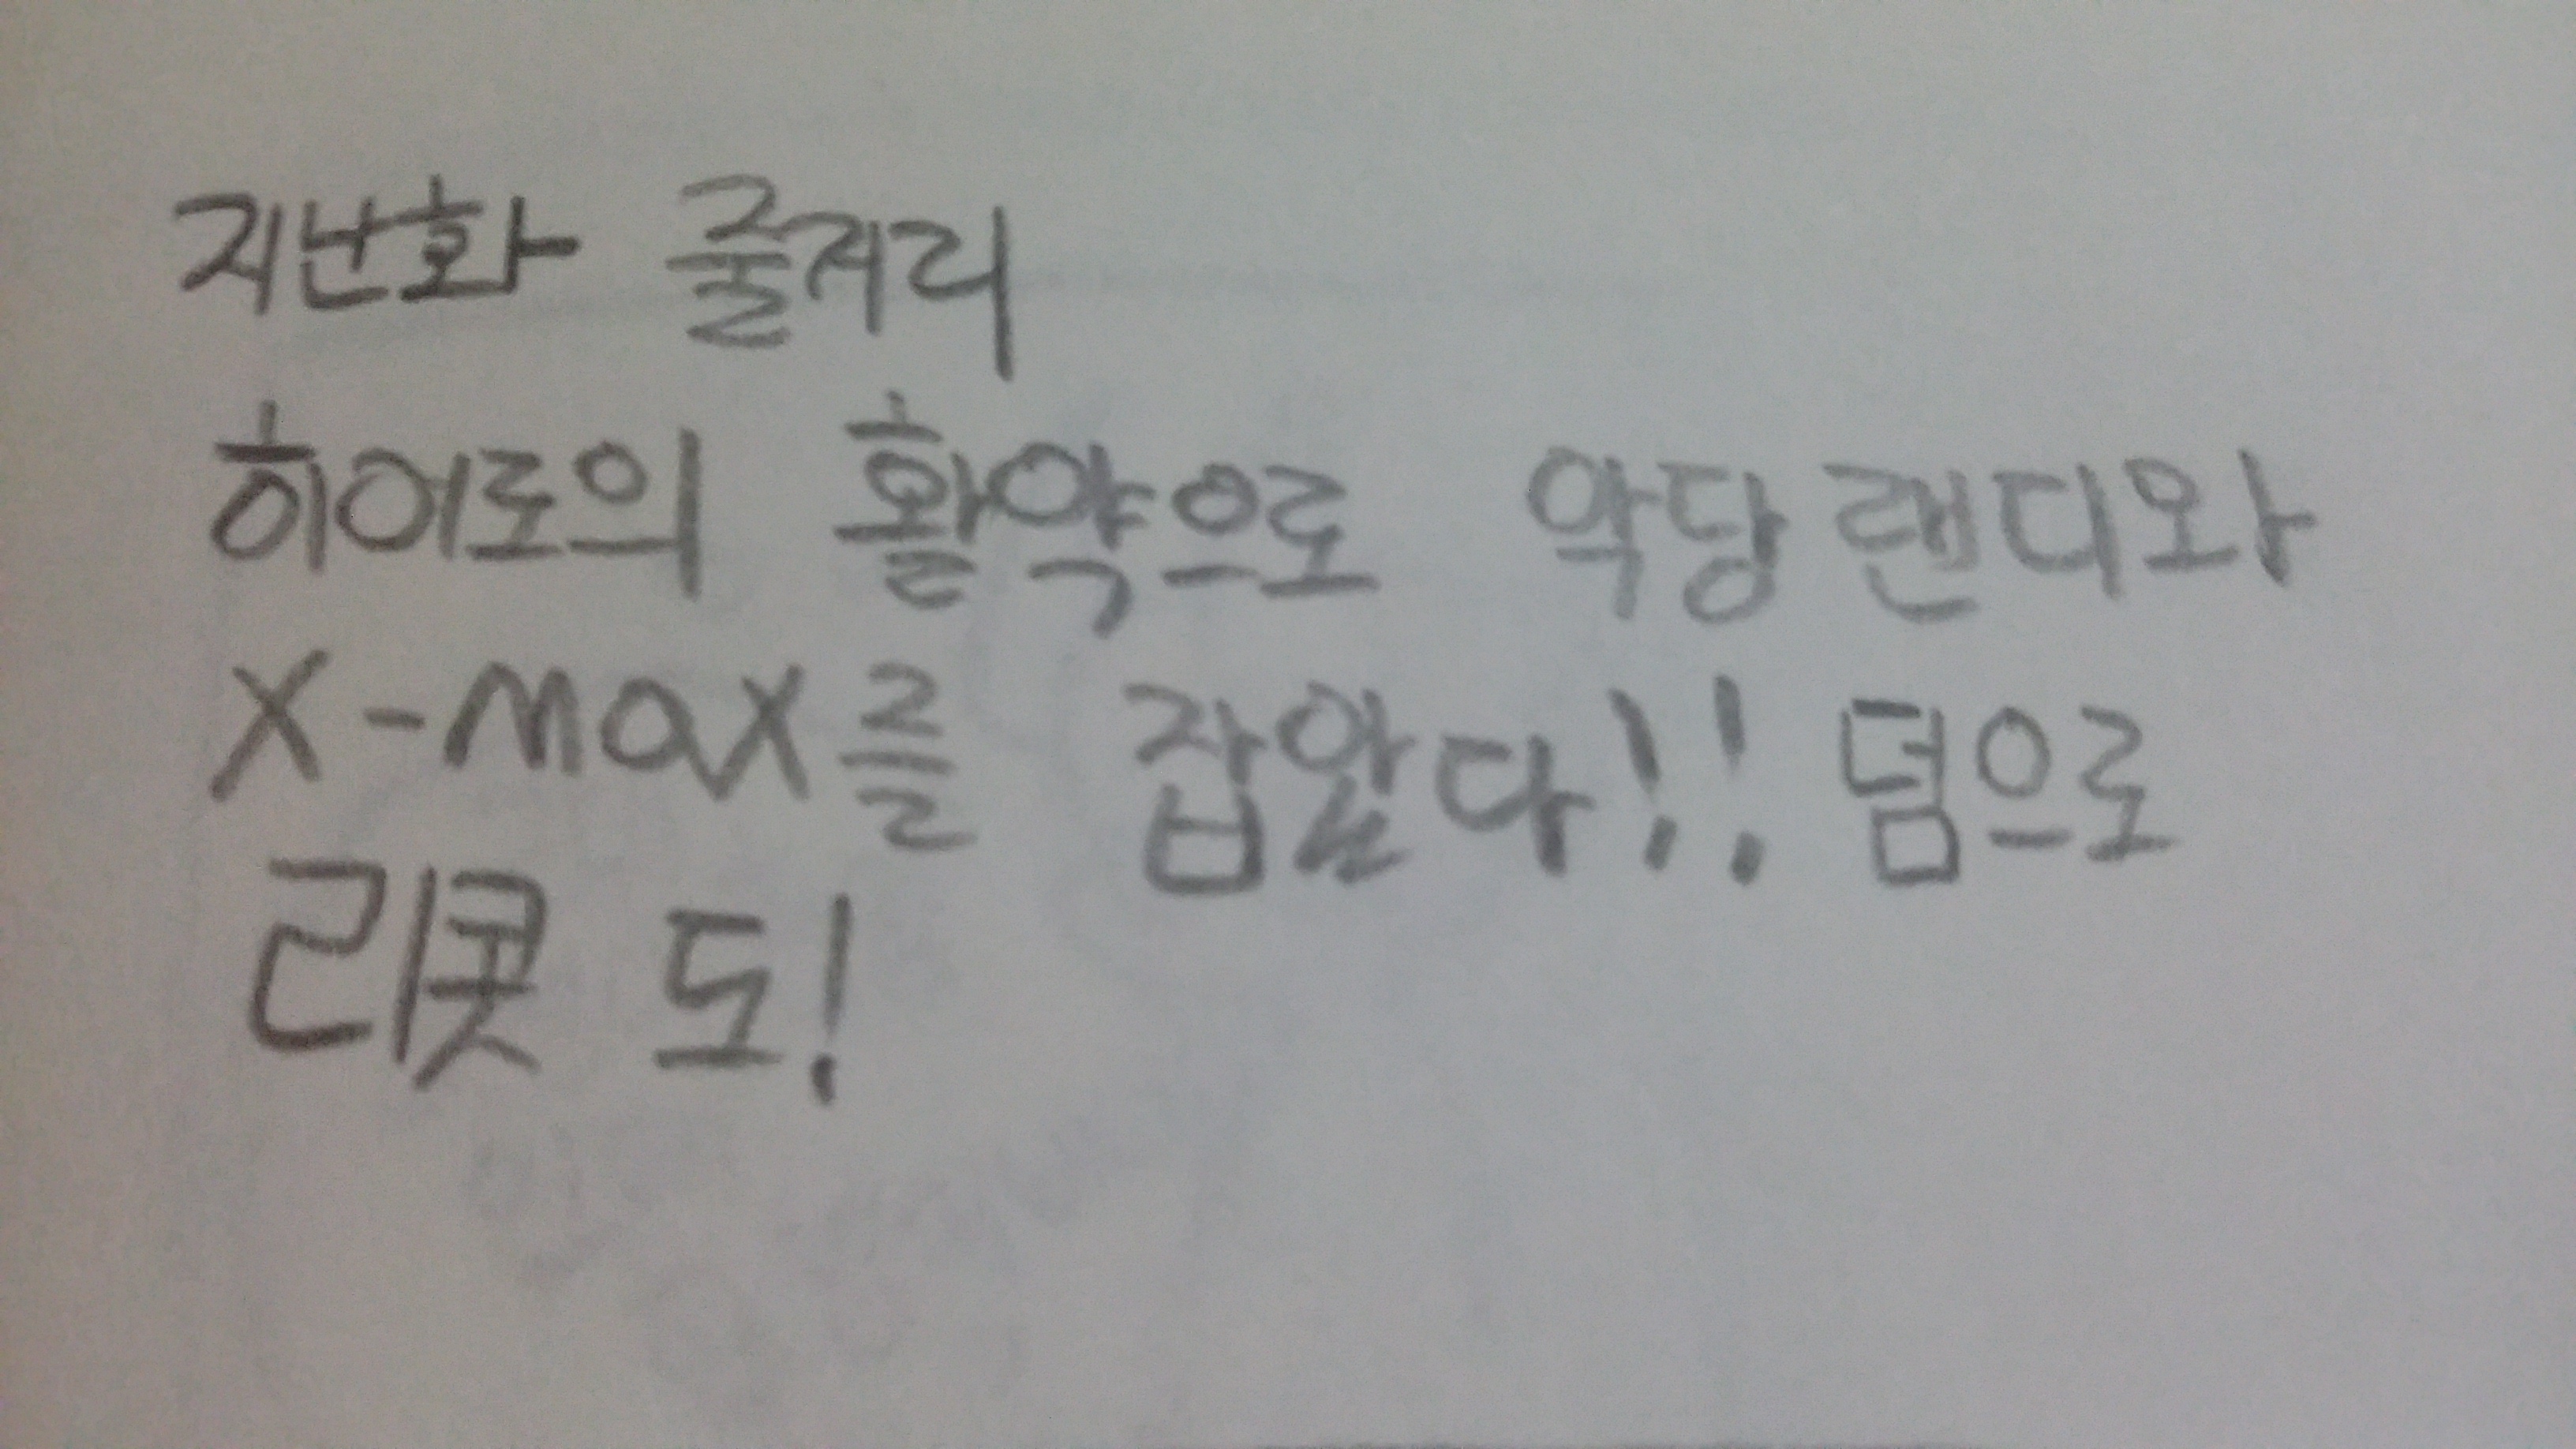 지난화 줄거리
히어로의 활약으로 악당랜디와
X-max를 잡았다!! 덤으로
리콧 도!